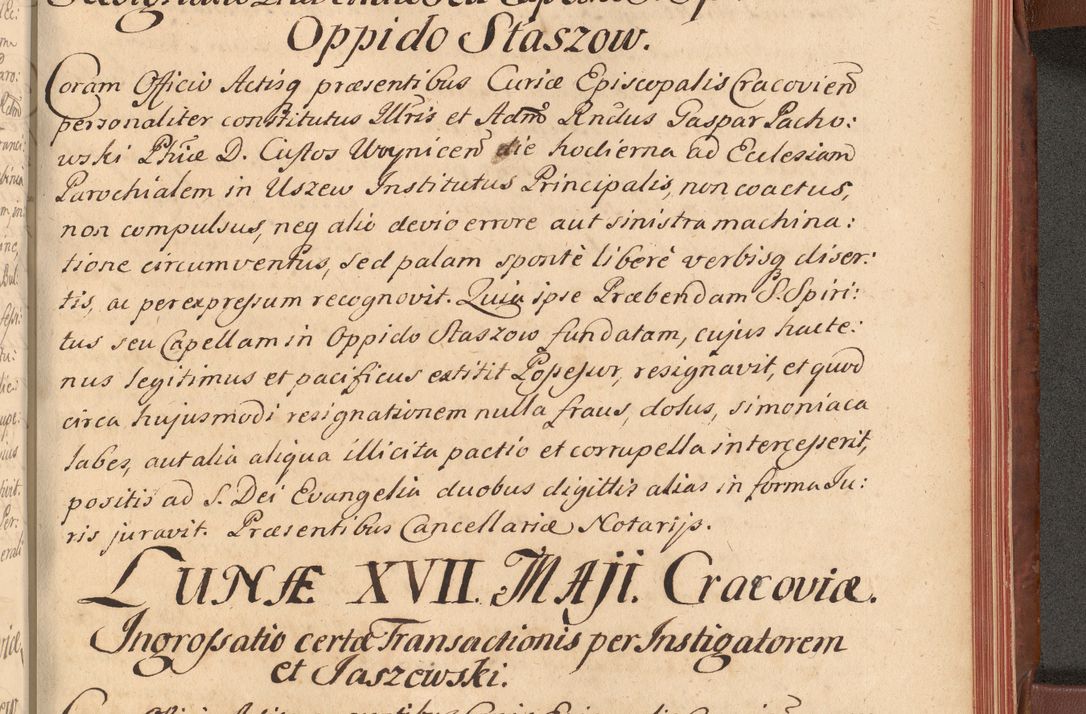 Oppido Staszow.
Coram Officio Actisq præsentibus Curiæ Episcopalis Cracovien
personaliter constitutus Illris et Adm Rndus Gaspar Pacho:
wski Phiæ D. Custos Woynicen die hodierna ad Ecclesiam
Parochialem in Uszew Institutus Principalis, non coactus,
non compulsus, neq alio devio errore aut sinistra machina:
tione circumventus, sed palam spontè liberè verbisq diser:
tis, ac per expressum recognovit. Quia ipse Præbendam S. Spiri:
tus seu Capellam in Oppido Staszow fundatam, cujus hacte:
nus legitimus et pacificus extitit Possessor, resignavit, et quod
circa hujusmodi resignationem nulla fraus, dolus, simoniaca
labes, aut alia aliqua illicita pactio et corruptella intercesserit,
positis ad S. Dei Evangelia duobus digittis alias in forma Ju:
ris juravit. Præsentibus Cancellariæ Notarijs.
LUNÆ XVII. MAJI. Cracoviæ.
Ingrossatio certæ Transactionis per Instigatorem
et Jaszewski.